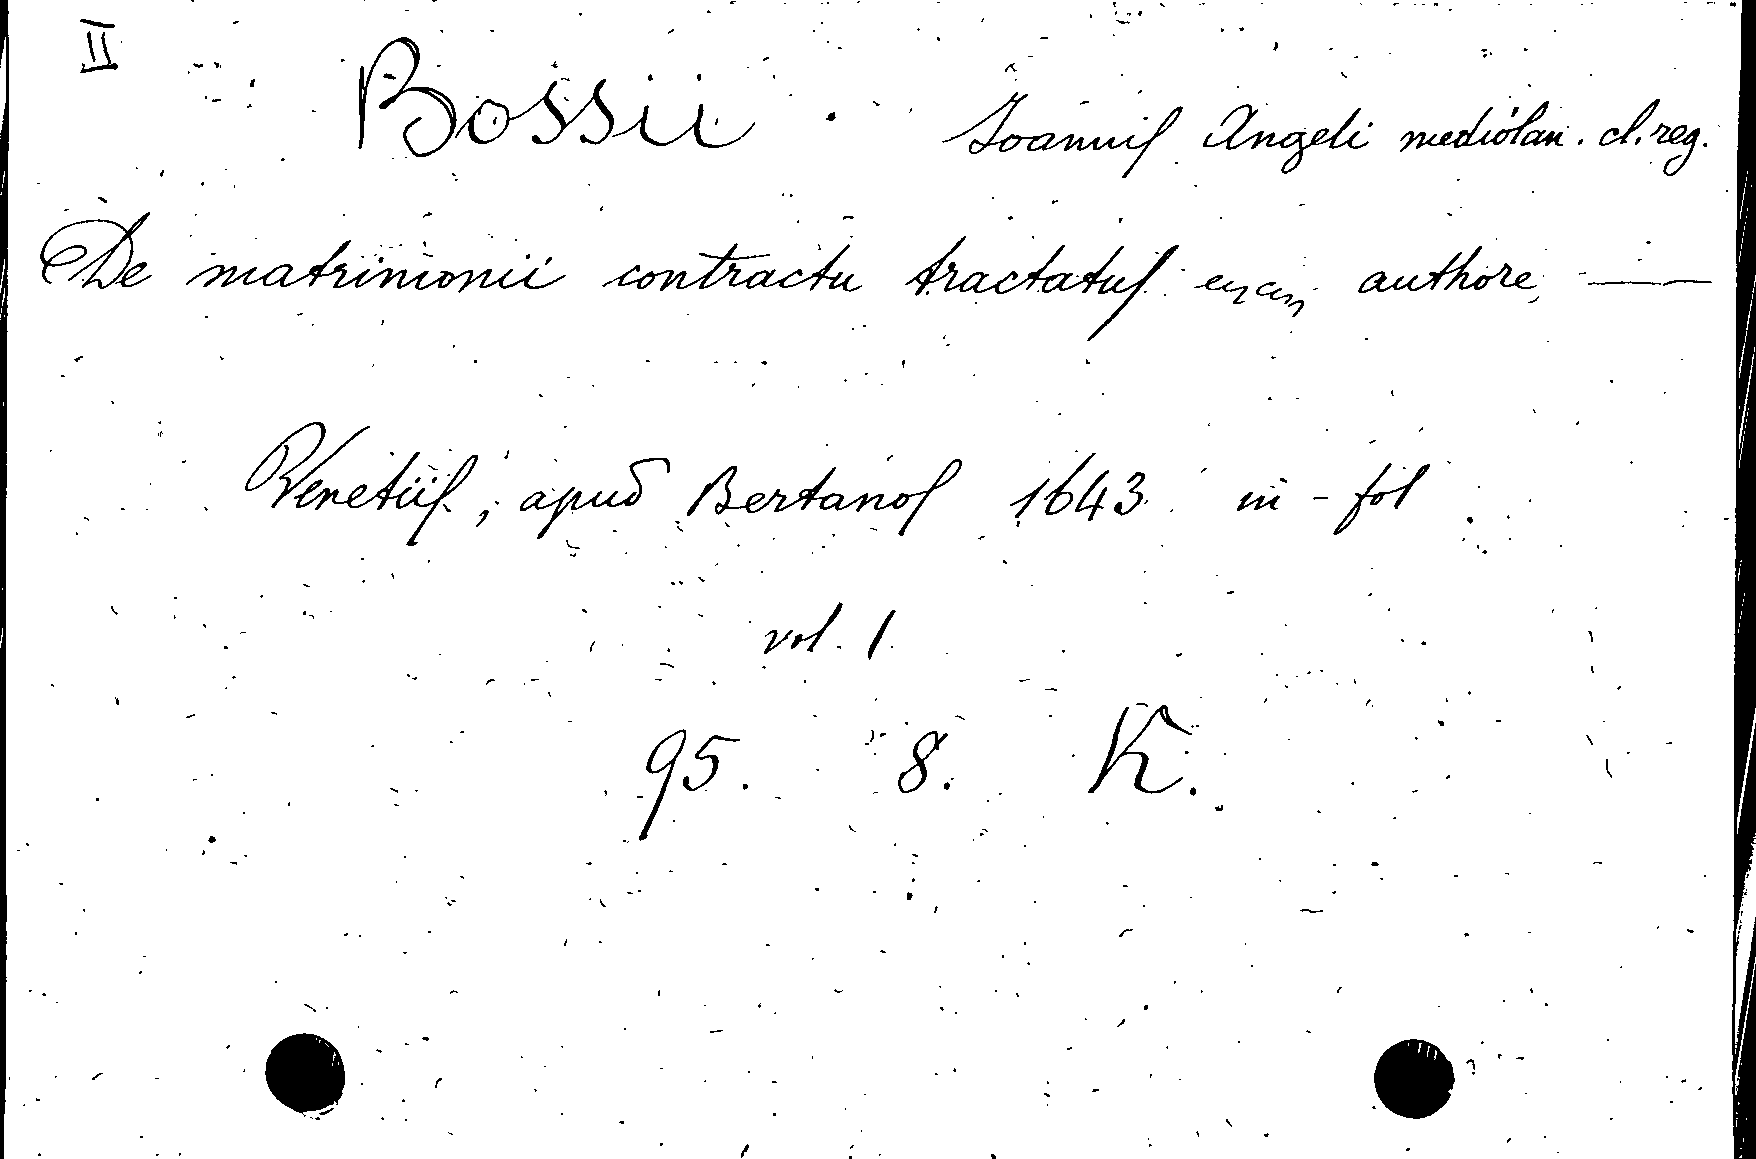 II
Bossii . Joannis Angeli mediolan. cl. reg.
De matrimonii contractu tractatus authore, —
Venetiis, apud Bertanos 1643 in - fol
vol. 1
95. 8. K.